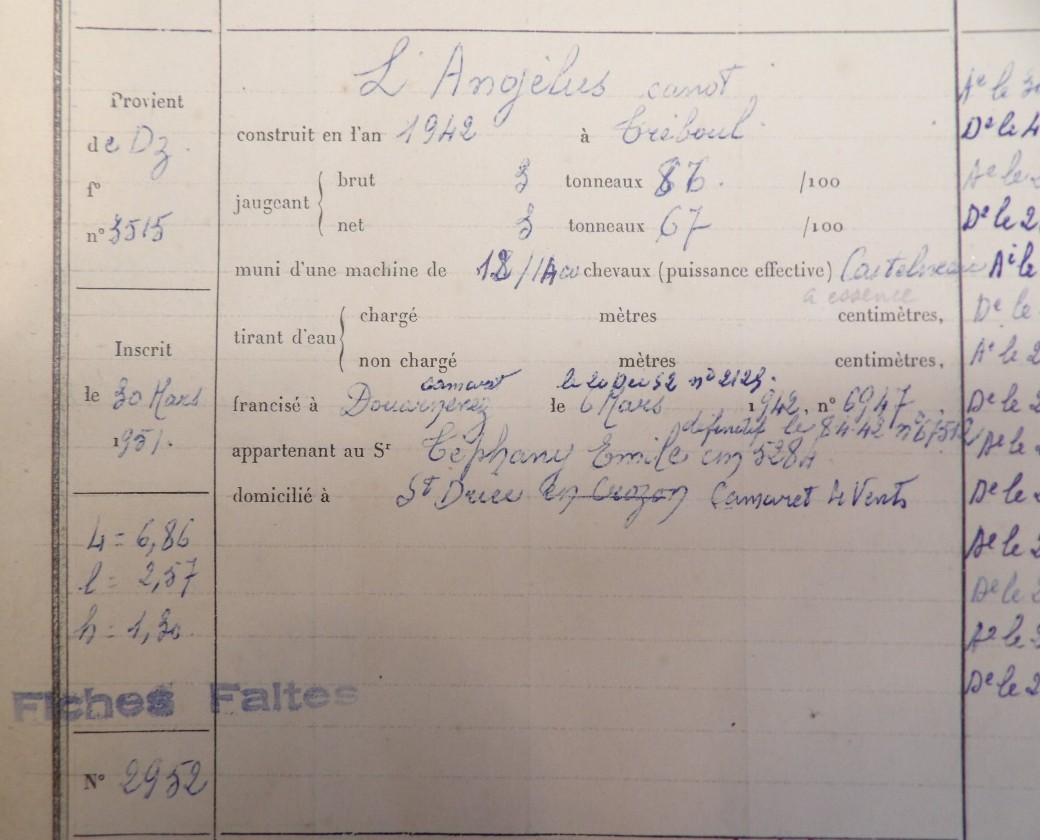 Provient
de Dz.
f°
n° 3515
Inscrit
le 30 Mars
1951.
L = 6,86
l = 2,57
h = 1,30
Fiches Faites
N° 2952
L'Angélus canot
construit en l'an 1942 à Tréboul
jaugeant
brut 3 tonneaux 86. /100
net 3 tonneaux 67 /100
muni d'une machine de 12/14 cv chevaux (puissance effective) Castelneau
à essence
tirant d'eau
chargé mètres centimètres,
non chargé mètres centimètres,
camaret le 20 Dec 52 n° 2123.
francisé à Douarnenez le 6 Mars 1942, n° 6947,
définitif le 8 4 42 n° 67512
appartenant au Sr Téphany Emile cm 5284
domicilié à St Driec en Crozon Camaret 4 Vents
Ae le 30
De le 4
Ae le 2
De le 2
Ae le
De le
Ae le 2
De le 2
Ae le 2
De le 2
Ae le 2
De le 2
Ae le 2
De le 2